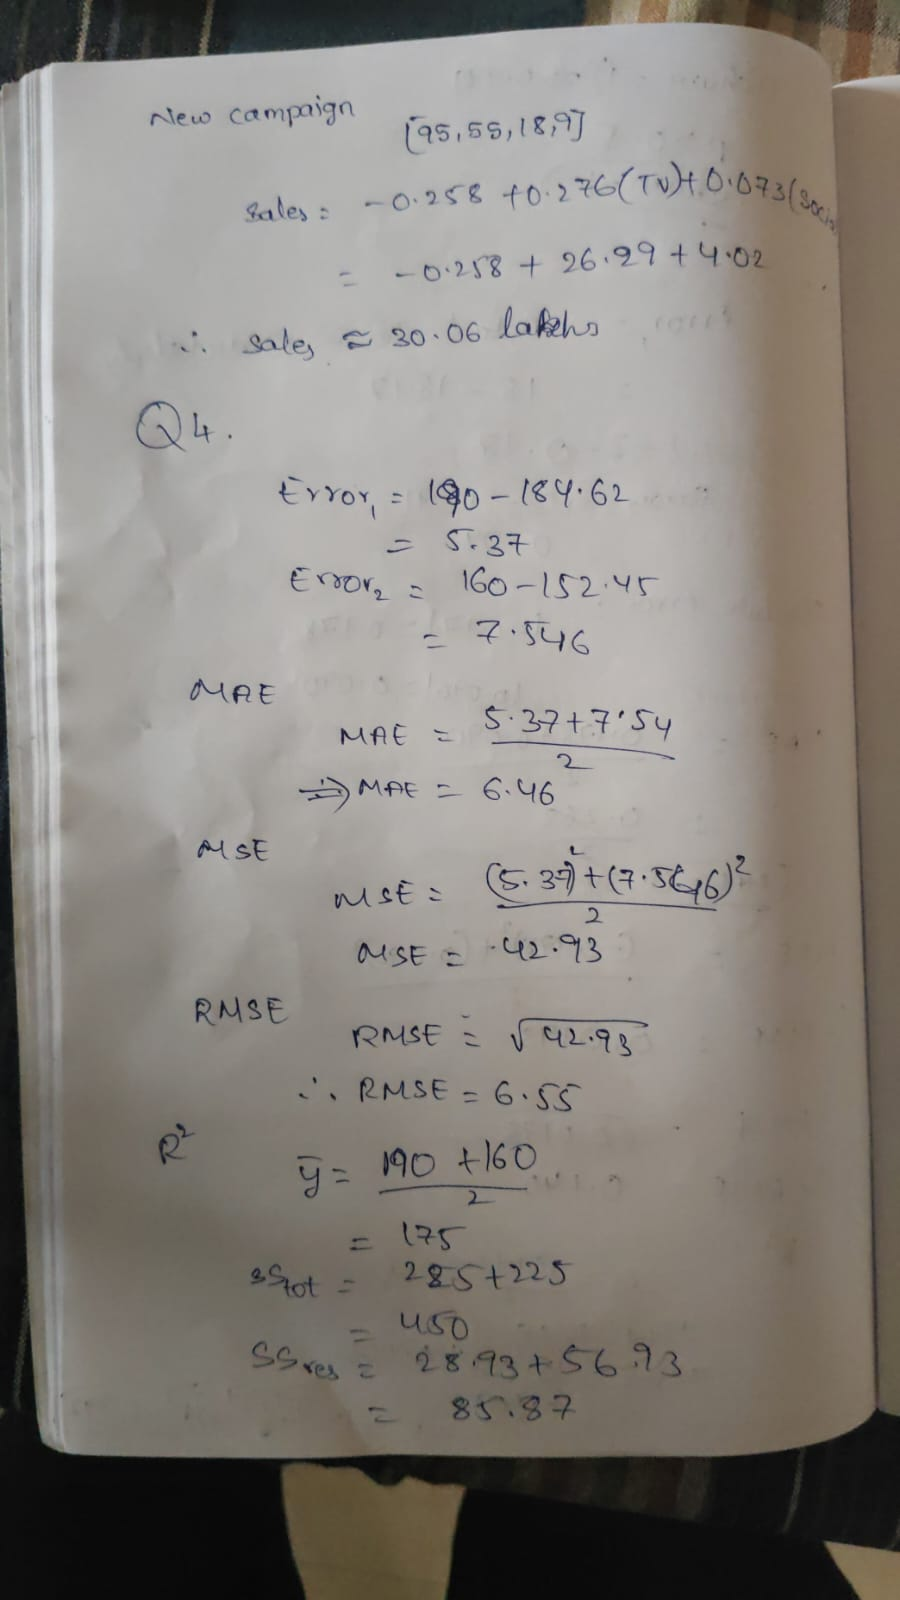 New campaign
[95,55,18,9]
Sales = -0.258 +0.276(TV)+0.073(Social
= -0.258 + 26.29 + 4.02
∴ Sales ≈ 30.06 lakhs
Q4.
Error₁ = 190 - 184.62
= 5.37
Error₂ = 160-152.45
= 7.546
MAE
MAE = 5.37+7.54
2
⇒ MAE = 6.46
MSE
MSE = (5.37)²+(7.546)²
2
MSE = 42.93
RMSE
RMSE = √42.93
∴ RMSE = 6.55
R²
ȳ = 190 +160
2
= 175
SStot = 225+225
= 450
SSres = 28.93+56.93
= 85.87